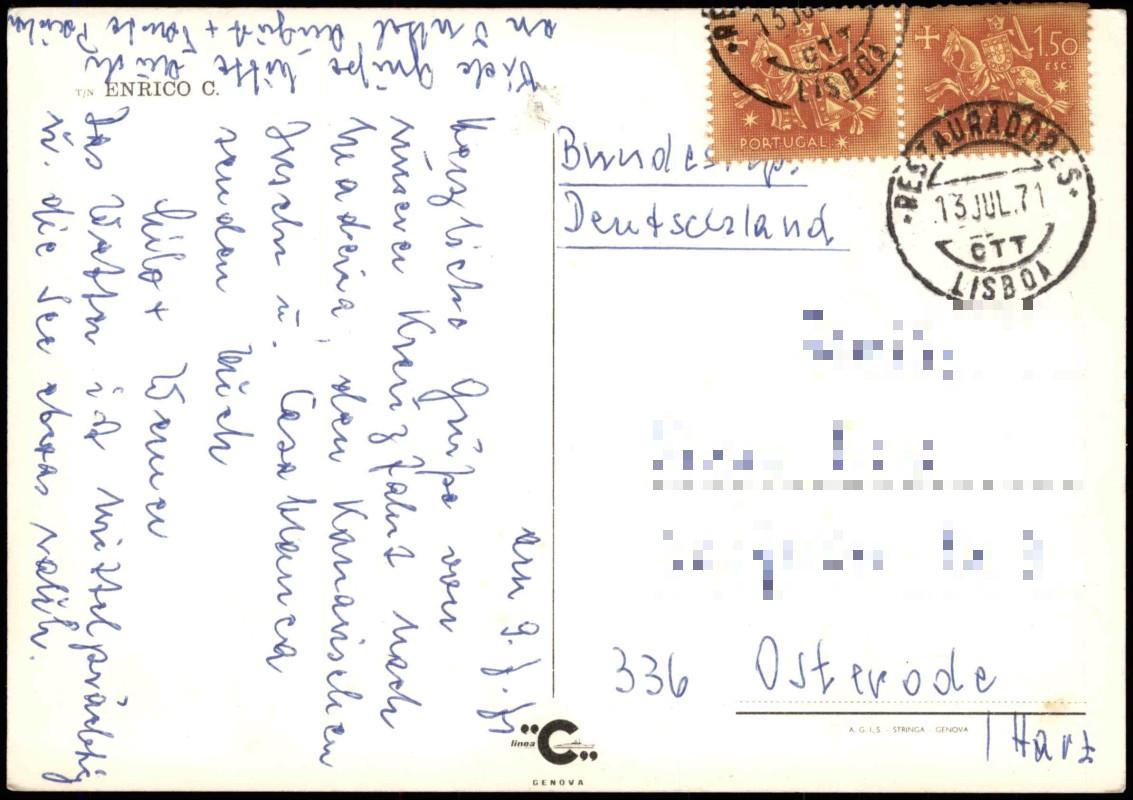 T/N ENRICO C.
am 9.7.71
Herzliche Grüße von
unserer Kreuzfahrt nach
Madeira, den Kanarischen
Inseln u. Casablanca
senden Euch
Milo + Werner
Das Wetter ist mittelprächtig
u. die See etwas rauh.
Viele Grüße bitte auch
an Onkel August + Tante Paula
PORTUGAL
1.50
ESC.
13 JUL
CTT
LISBOA
RESTAURADORES
13 JUL. 71
CTT
LISBOA
Bundesrep.
Deutschland
336 Osterode
/ Harz
linea "C"
GENOVA
A. G. I. S. - STRINGA - GENOVA